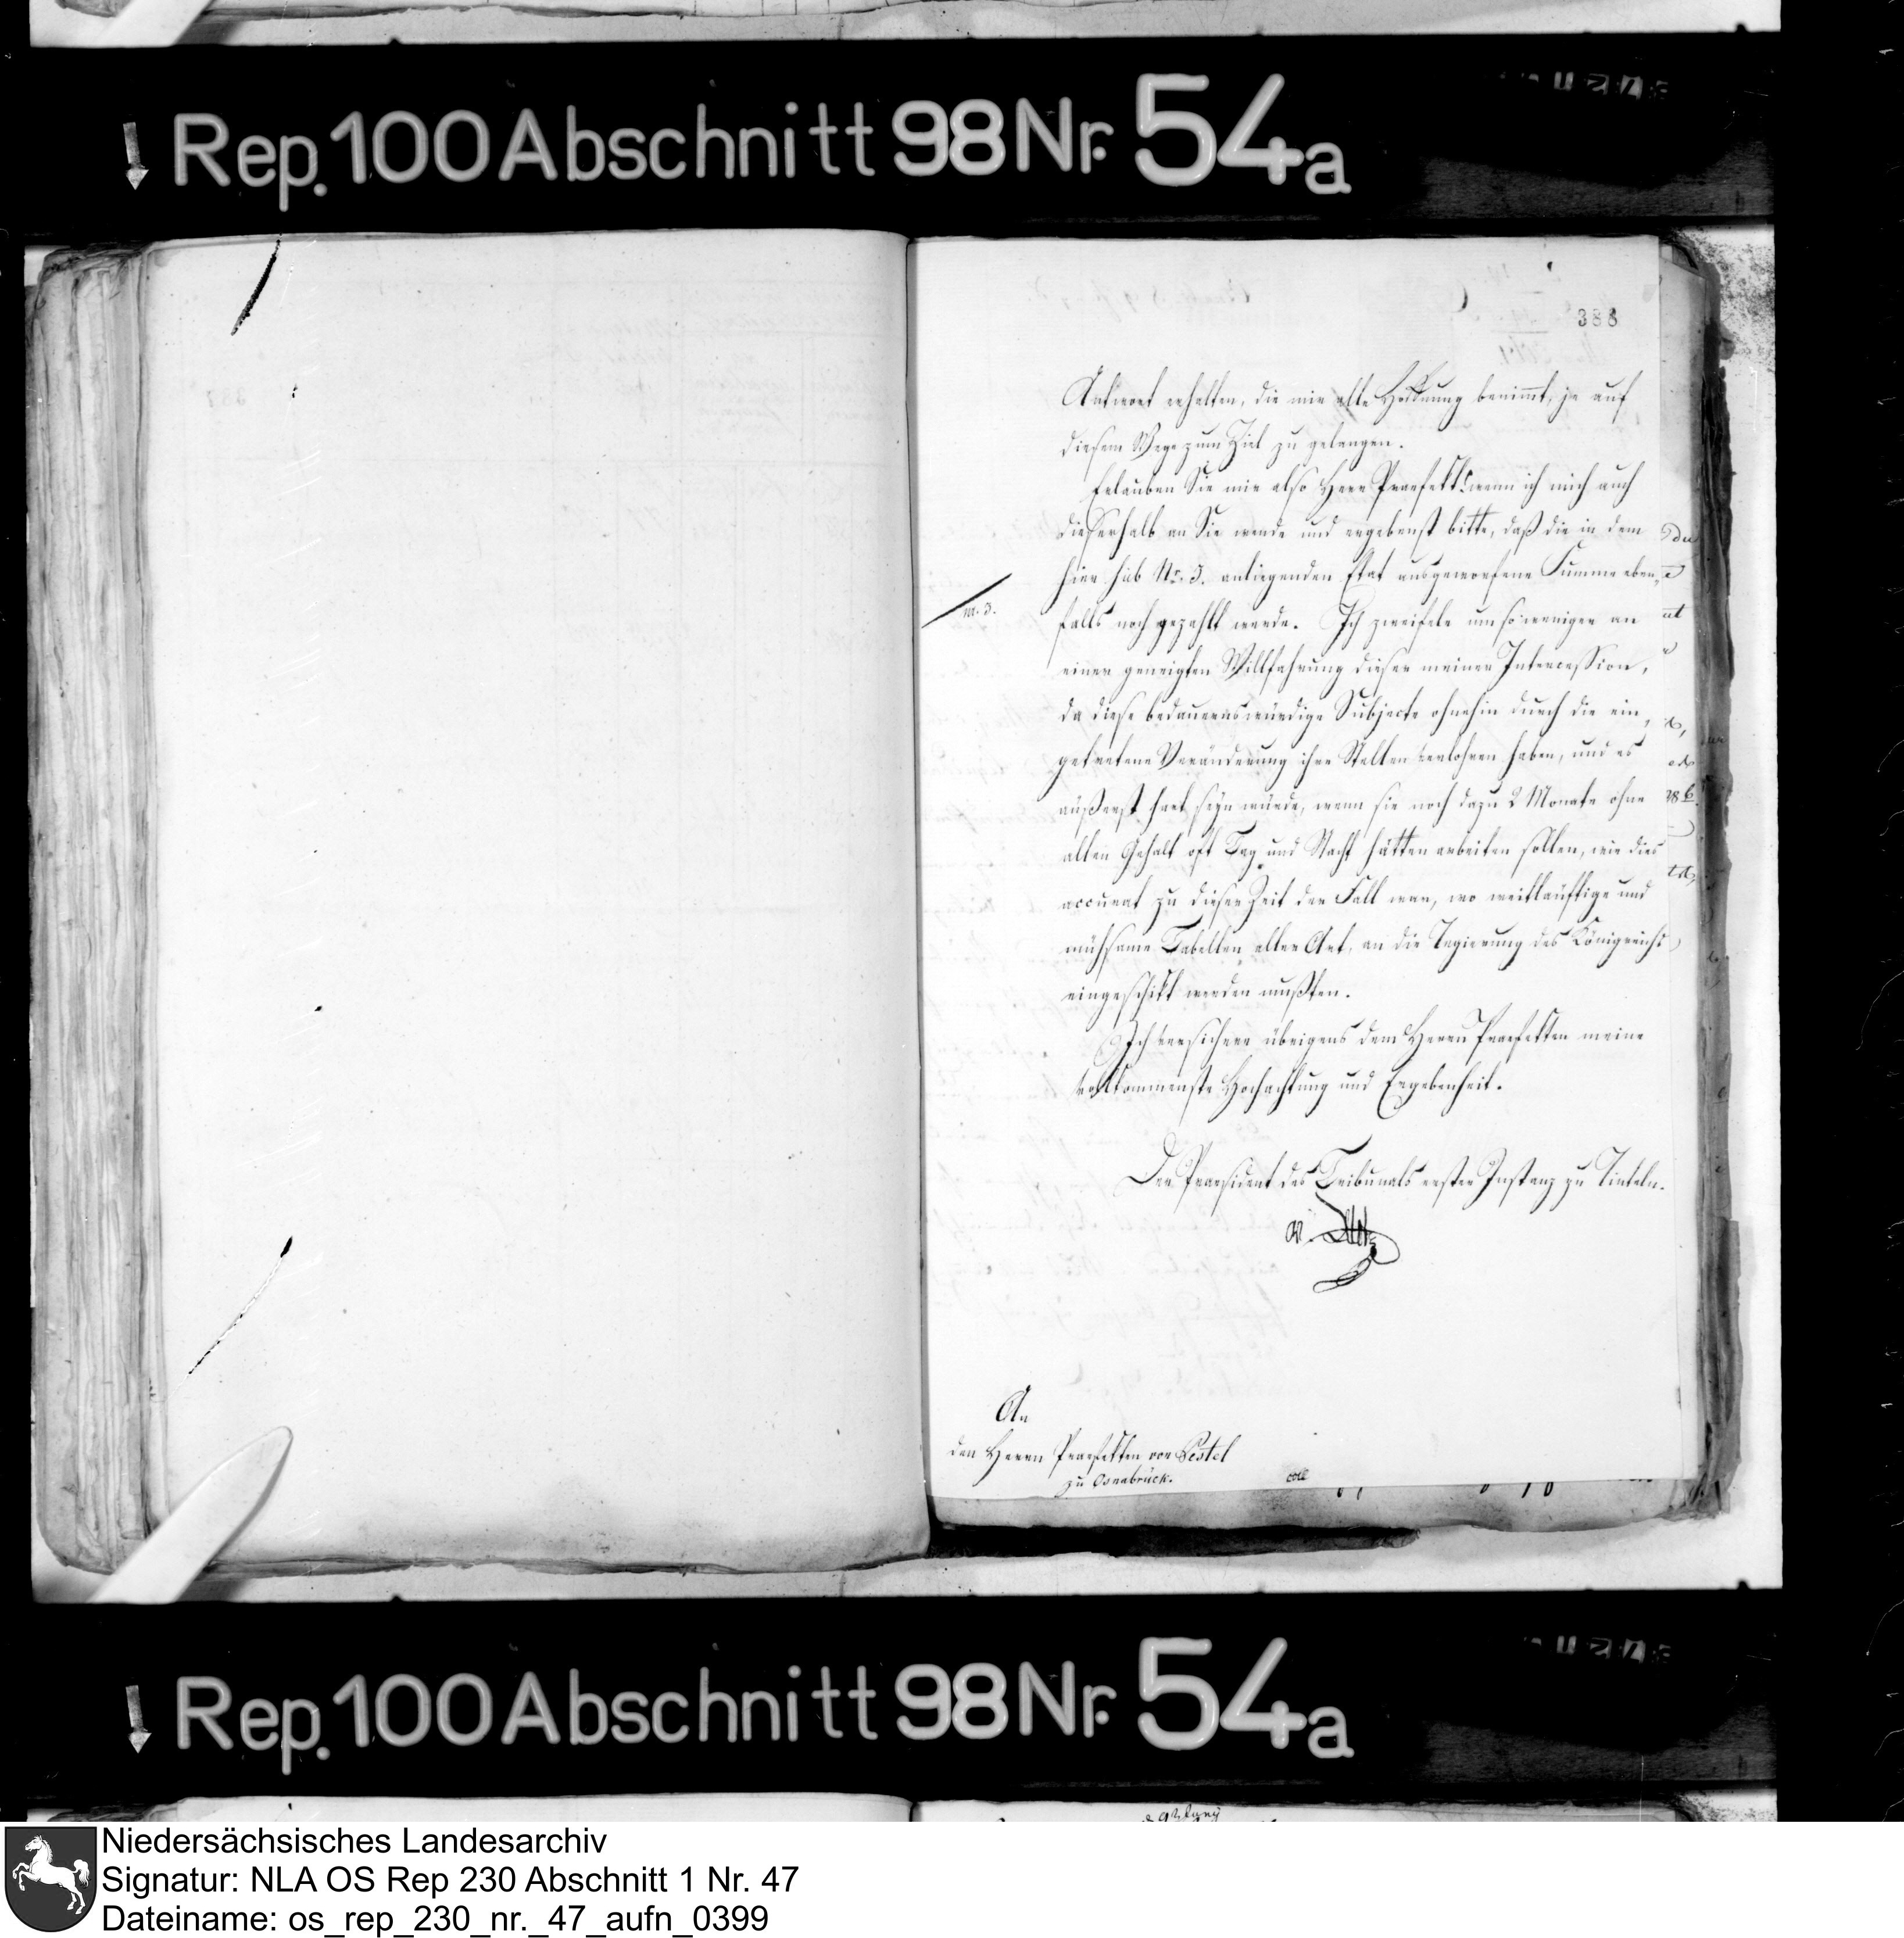 Rep. 100 Abschnitt 98 Nr. 54a
388
Antwort erhalten, die mir alle Hoffnung benimmt, je auf
diesem Wege zum Ziel zu gelangen.
Erlauben Sie mir also Herr Praefekt! wenn ich mich auch
dieserhalb an Sie wende und ergebenst bitte, daß die in dem
hier sub No. 3. anliegenden Etat ausgeworfene Summe eben„
nr. 3.
falls noch gezahlt werde. Ich zweifele um so weniger an
einer geneigten Willfahrung dieser meiner Intercession,
da diese bedauernswürdige Subjecte ohnehin durch die ein„
getretene Veränderung ihre Stellen verlohren haben, und es
äußerst hart seyn würde, wenn sie noch dazu 2 Monate ohne
allen Gehalt oft Tag und Nacht hätten arbeiten sollen, wie dies
accurat zu dieser Zeit der Fall war, wo weitläuftige und
mühsame Tabellen aller Art, an die Regierung des Königreichs
eingeschikt werden mußten.
Ich versichere übrigens dem Herrn Praefekten meine
vollkommenste Hochachtung und Ergebenheit.
Der Praesident des Tribunals erster Instanz zu Rinteln.
An
den Herrn Praefekten von Pestel
zu Osnabrück.
coll
Rep. 100 Abschnitt 98 Nr. 54a
Niedersächsisches Landesarchiv
Signatur: NLA OS Rep 230 Abschnitt 1 Nr. 47
Dateiname: os_rep_230_nr._47_aufn_0399